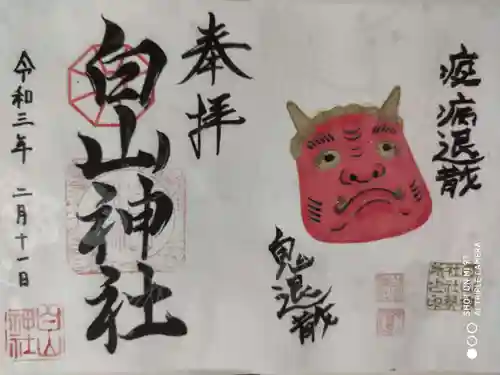 疫病退散
鬼退散
奉拝
白山神社
令和三年 二月十一日
白山
神社
SHOT ON MI 9T
AI TRIPLE CAMERA